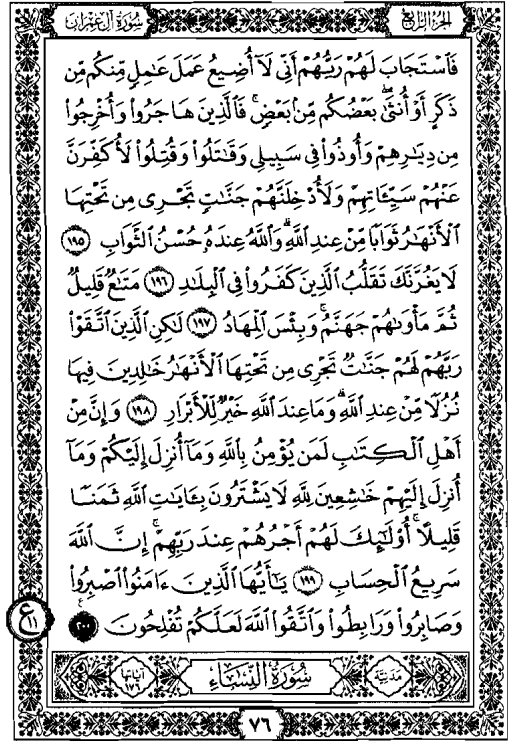 الجزء الرابع
سورة آل عمران
فَٱسْتَجَابَ لَهُمْ رَبُّهُمْ أَنِّى لَآ أُضِيعُ عَمَلَ عَٰمِلٍ مِّنكُم مِّن
ذَكَرٍ أَوْ أُنثَىٰۖ بَعْضُكُم مِّنۢ بَعْضٍۖ فَٱلَّذِينَ هَاجَرُوا۟ وَأُخْرِجُوا۟
مِن دِيَٰرِهِمْ وَأُوذُوا۟ فِى سَبِيلِى وَقَٰتَلُوا۟ وَقُتِلُوا۟ لَأُكَفِّرَنَّ
عَنْهُمْ سَيِّـَٔاتِهِمْ وَلَأُدْخِلَنَّهُمْ جَنَّٰتٍ تَجْرِى مِن تَحْتِهَا
ٱلْأَنْهَٰرُ ثَوَابًا مِّنْ عِندِ ٱللَّهِۗ وَٱللَّهُ عِندَهُۥ حُسْنُ ٱلثَّوَابِ ١٩٥
لَا يَغُرَّنَّكَ تَقَلُّبُ ٱلَّذِينَ كَفَرُوا۟ فِى ٱلْبِلَٰدِ ١٩٦ مَتَٰعٌ قَلِيلٌ
ثُمَّ مَأْوَىٰهُمْ جَهَنَّمُۚ وَبِئْسَ ٱلْمِهَادُ ١٩٧ لَٰكِنِ ٱلَّذِينَ ٱتَّقَوْا۟
رَبَّهُمْ لَهُمْ جَنَّٰتٌ تَجْرِى مِن تَحْتِهَا ٱلْأَنْهَٰرُ خَٰلِدِينَ فِيهَا
نُزُلًا مِّنْ عِندِ ٱللَّهِۗ وَمَا عِندَ ٱللَّهِ خَيْرٌ لِّلْأَبْرَارِ ١٩٨ وَإِنَّ مِنْ
أَهْلِ ٱلْكِتَٰبِ لَمَن يُؤْمِنُ بِٱللَّهِ وَمَآ أُنزِلَ إِلَيْكُمْ وَمَآ
أُنزِلَ إِلَيْهِمْ خَٰشِعِينَ لِلَّهِ لَا يَشْتَرُونَ بِـَٔايَٰتِ ٱللَّهِ ثَمَنًا
قَلِيلًاۗ أُو۟لَٰٓئِكَ لَهُمْ أَجْرُهُمْ عِندَ رَبِّهِمْۗ إِنَّ ٱللَّهَ
سَرِيعُ ٱلْحِسَابِ ١٩٩ يَٰٓأَيُّهَا ٱلَّذِينَ ءَامَنُوا۟ ٱصْبِرُوا۟
وَصَابِرُوا۟ وَرَابِطُوا۟ وَٱتَّقُوا۟ ٱللَّهَ لَعَلَّكُمْ تُفْلِحُونَ ٢٠٠
ع ١١
مدنية
سورة النساء
آياتها ١٧٦
٧٦